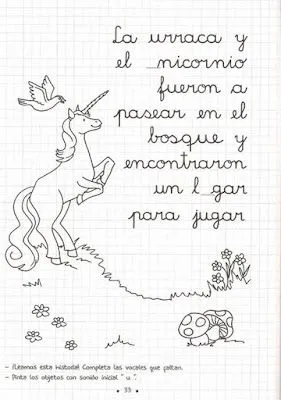 La urraca y
el _nicornio
fueron a
pasear en el
bosque y
encontraron
un l_gar
para jugar
- ¡Leamos esta historia! Completa las vocales que faltan.
- Pinta los objetos con sonido inicial "u".
33